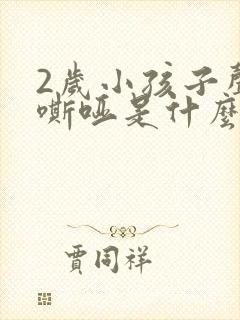 2歲小孩子聲
嘶啞是什麼
賈同祥